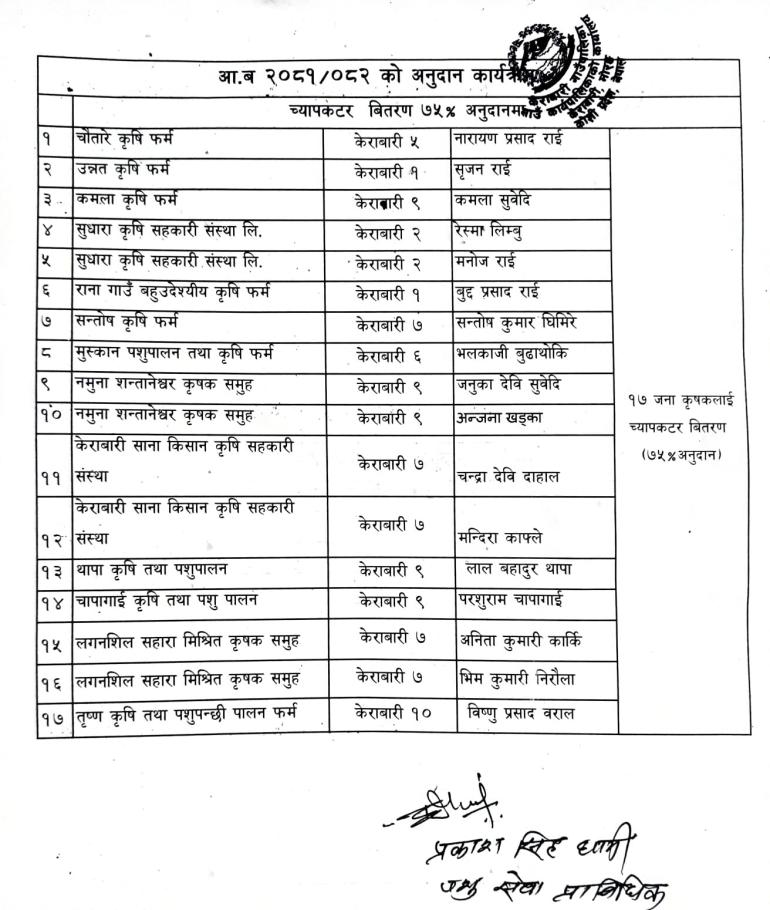 आ.ब २०८१/०८२ को अनुदान कार्यक्रम
च्यापकटर बितरण ७५% अनुदानमा
१ चौतारे कृषि फर्म केराबारी ५ नारायण प्रसाद राई
२ उन्नत कृषि फर्म केराबारी १ सृजन राई
३ कमला कृषि फर्म केराबारी ९ कमला सुवेदि
४ सुधारा कृषि सहकारी संस्था लि. केराबारी २ रेस्मा लिम्बु
५ सुधारा कृषि सहकारी संस्था लि. केराबारी २ मनोज राई
६ राना गाउँ बहुउदेश्यीय कृषि फर्म केराबारी १ बुद्द प्रसाद राई
७ सन्तोष कृषि फर्म केराबारी ७ सन्तोष कुमार घिमिरे
८ मुस्कान पशुपालन तथा कृषि फर्म केराबारी ६ भलकाजी बुढाथोकि
९ नमुना शन्तानेश्वर कृषक समुह केराबारी ९ जनुका देवि सुवेदि
१० नमुना शन्तानेश्वर कृषक समुह केराबारी ९ अन्जना खड्का
केराबारी साना किसान कृषि सहकारी
११ संस्था केराबारी ७ चन्द्रा देवि दाहाल
केराबारी साना किसान कृषि सहकारी
१२ संस्था केराबारी ७ मन्दिरा काफ्ले
१३ थापा कृषि तथा पशुपालन केराबारी ९ लाल बहादुर थापा
१४ चापागाई कृषि तथा पशु पालन केराबारी ९ परशुराम चापागाई
१५ लगनशिल सहारा मिश्रित कृषक समुह केराबारी ७ अनिता कुमारी कार्कि
१६ लगनशिल सहारा मिश्रित कृषक समुह केराबारी ७ भिम कुमारी निरौला
१७ तृष्ण कृषि तथा पशुपन्छी पालन फर्म केराबारी १० विष्णु प्रसाद वराल
१७ जना कृषकलाई
च्यापकटर बितरण
(७५%अनुदान)
केराबारी गाउँपालिका
गाउँ कार्यपालिकाको कार्यालय
केराबारी, मोरङ
कोशी प्रदेश, नेपाल
प्रकाश सिंह धामी
पशु सेवा प्राबिधिक